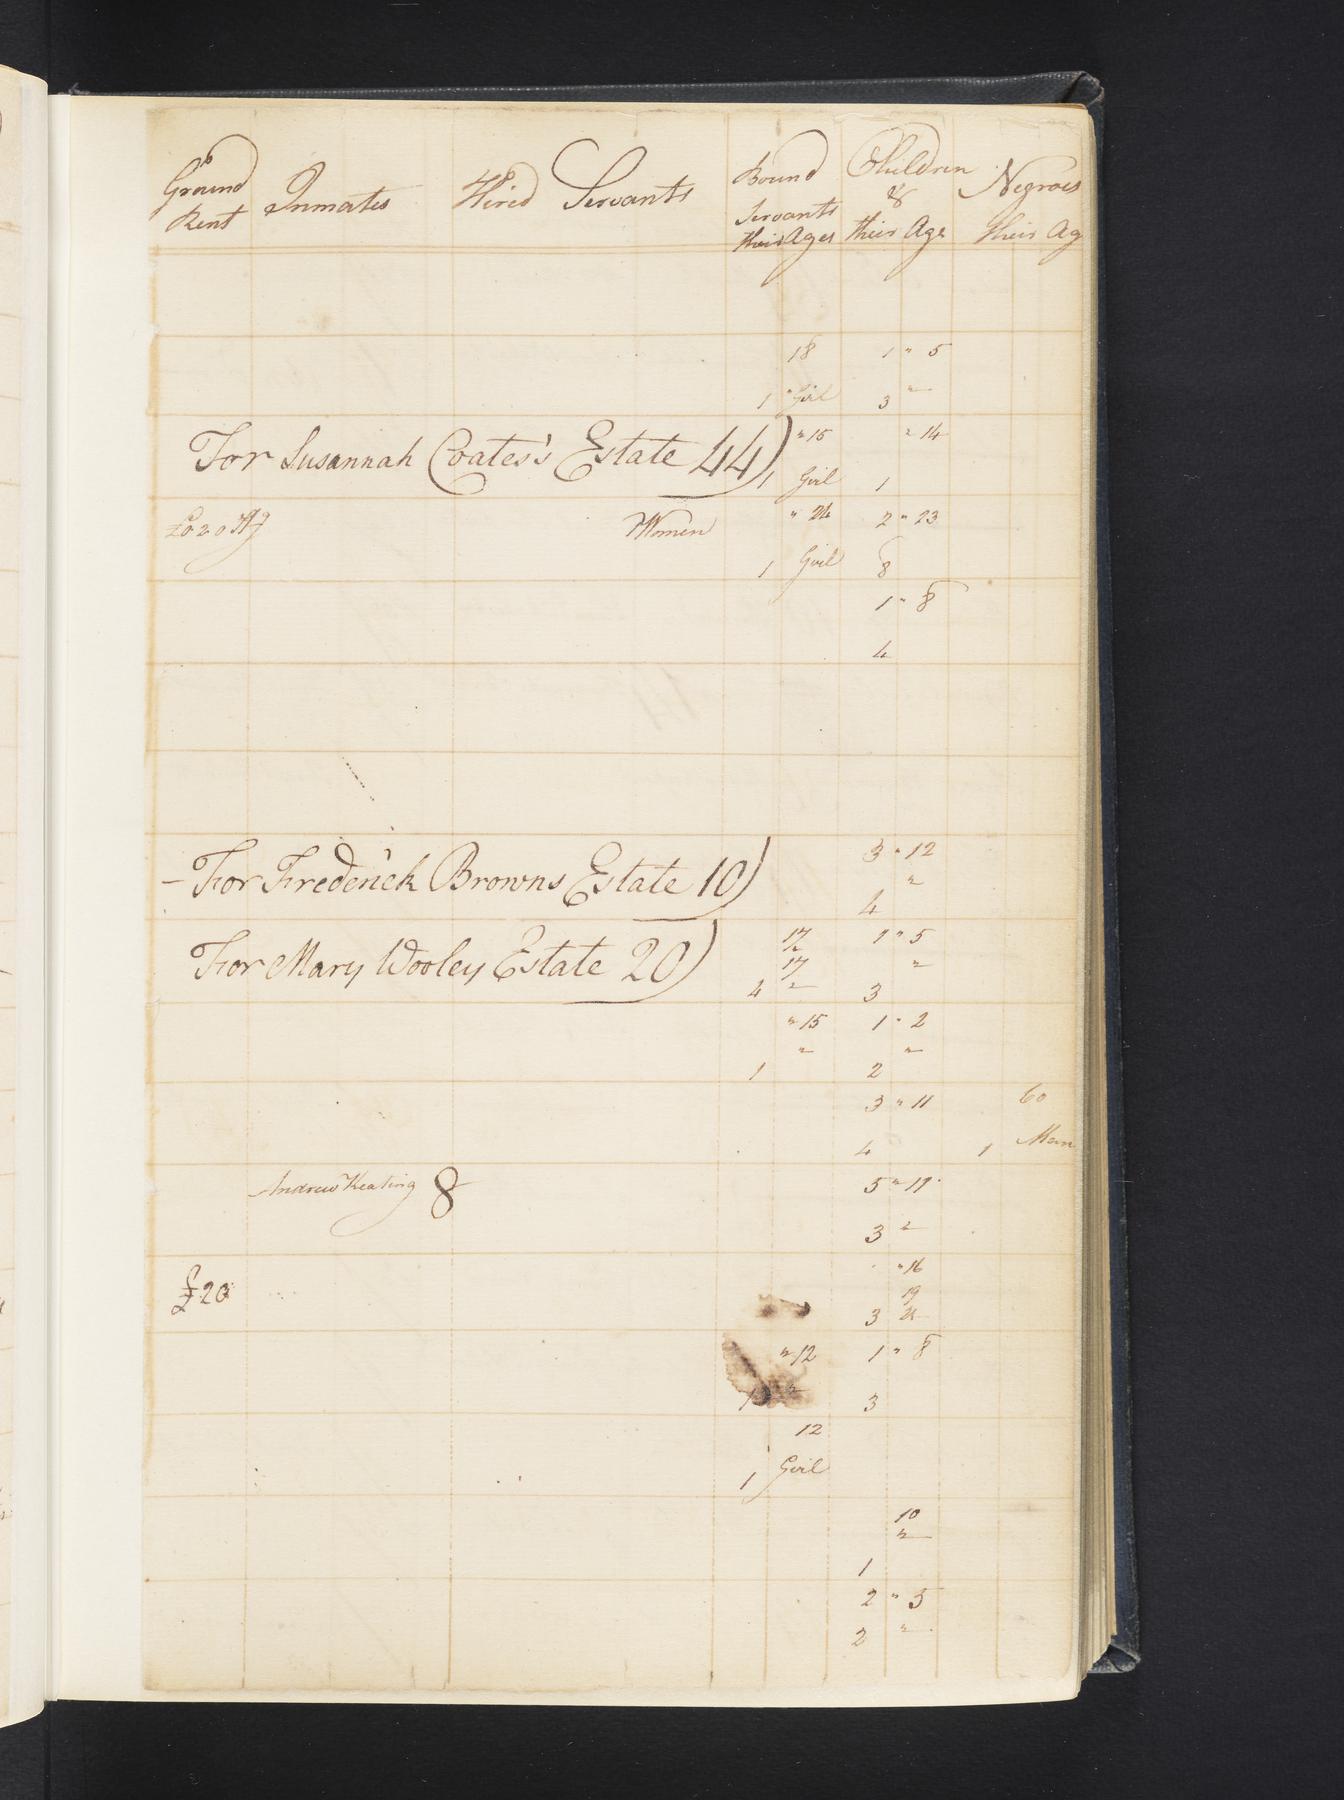 Ground Rent Inmates Hired Servants Bound Servants their Ages Children & their Age Negroes their Ag
18 1 " 5
1 " Girl 3 "
For Susannah Coates's Estate 44) " 15 " 14
1 Girl 1
£020 Women " 24 2 " 23
1 Girl 8
1 " 8
4
3 " 12
– For Frederick Browns Estate 10) "
4
17 1 " 5
For Mary Wooley Estate 20) 17 "
4 " 3
" 15 1 " 2
" "
1 2
3 " 11 60
4 1 Man
Andrew Keating 8 5 " 11
3 "
" 16
£20 19
3 21
" 12 1 " 8
1 " 3
12
1 Girl
10
"
1
2 " 5
2 "